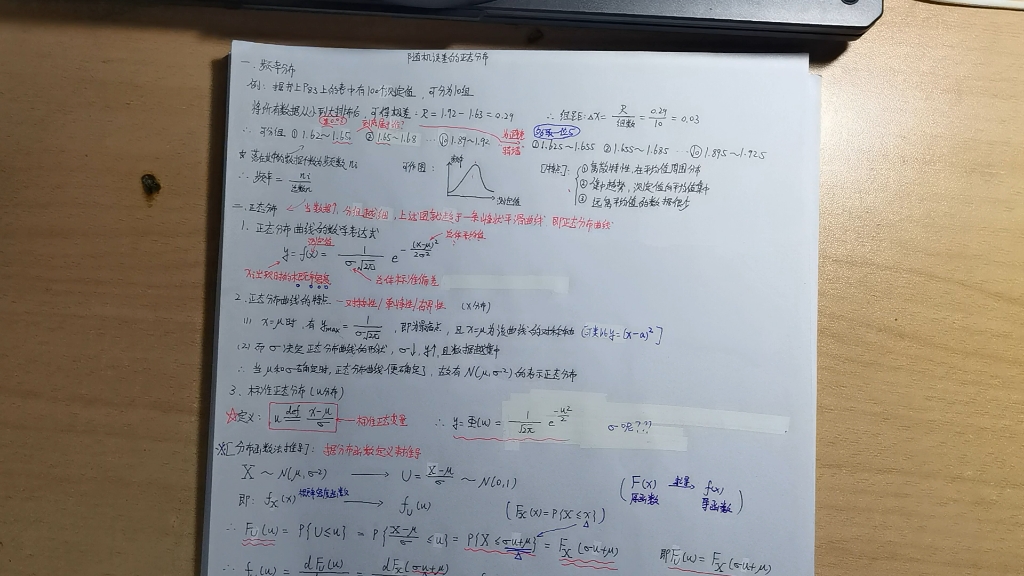 随机误差的正态分布
一、频率分布
例：根书上P83上的表中有100个测定值，可分为10组
将所有数据从小到大排布后，可得极差：R = 1.92 - 1.63 = 0.29 ∴ 组距：ΔX = R/组数 = 0.29/10 = 0.03
∴ 可分组 ① 1.62~1.65 ② 1.65~1.68 … ⑩ 1.89~1.92 多取一位5 ① 1.625~1.655 ② 1.655~1.685 … ⑩ 1.895~1.925
☆ 落在此中的数据个数为频数 ni 可作图： 频率 测定值 [特点]： ① 离散特性，在平均值周围分布
∴ 频率 = ni/总数n ② 集中趋势，测定值向平均值集中
③ 远离平均值的数据很少
二、正态分布 当数据↑，分组越细，上述图就趋于一条峰状平滑曲线 即正态分布曲线
1. 正态分布曲线的数学表达式
测定值 总体平均值
y = f(x) = 1/(σ√2π) e^(-(x-μ)²/2σ²)
x出现时的概率密度 总体标准偏差
2. 正态分布曲线的特点 — 对称性/单峰性/有界性 (x分布)
(1) x=μ时，有 ymax = 1/(σ√2π)，即为最高点，且 x=μ为该曲线的对称轴 [可类比y=(x-a)²]
(2) 而 σ 决定正态分布曲线的形状，σ↓，y↑，且数据越集中
∴ 当μ和σ确定时，正态分布曲线便确定了，故有 N(μ,σ²) 的表示正态分布
3. 标准正态分布 (u分布)
☆定义： u def (x-μ)/σ — 标准正态变量 ∴ y=Φ(u) = 1/√2π e^(-u²/2) σ呢???
※[分布函数法推导]： 据分布函数定义来推导
X ~ N(μ,σ²) → U = (X-μ)/σ ~ N(0,1) ( F(x) 求导→ f(x)
原函数 导函数 )
即： fX(x) 概率密度函数 → fU(u) ( FX(x) = P{X≤x} )
∴ FU(u) = P{U≤u} = P{(X-μ)/σ ≤ u} = P{X ≤ σu+μ} = FX(σu+μ) 即FU(u) = FX(σu+μ)